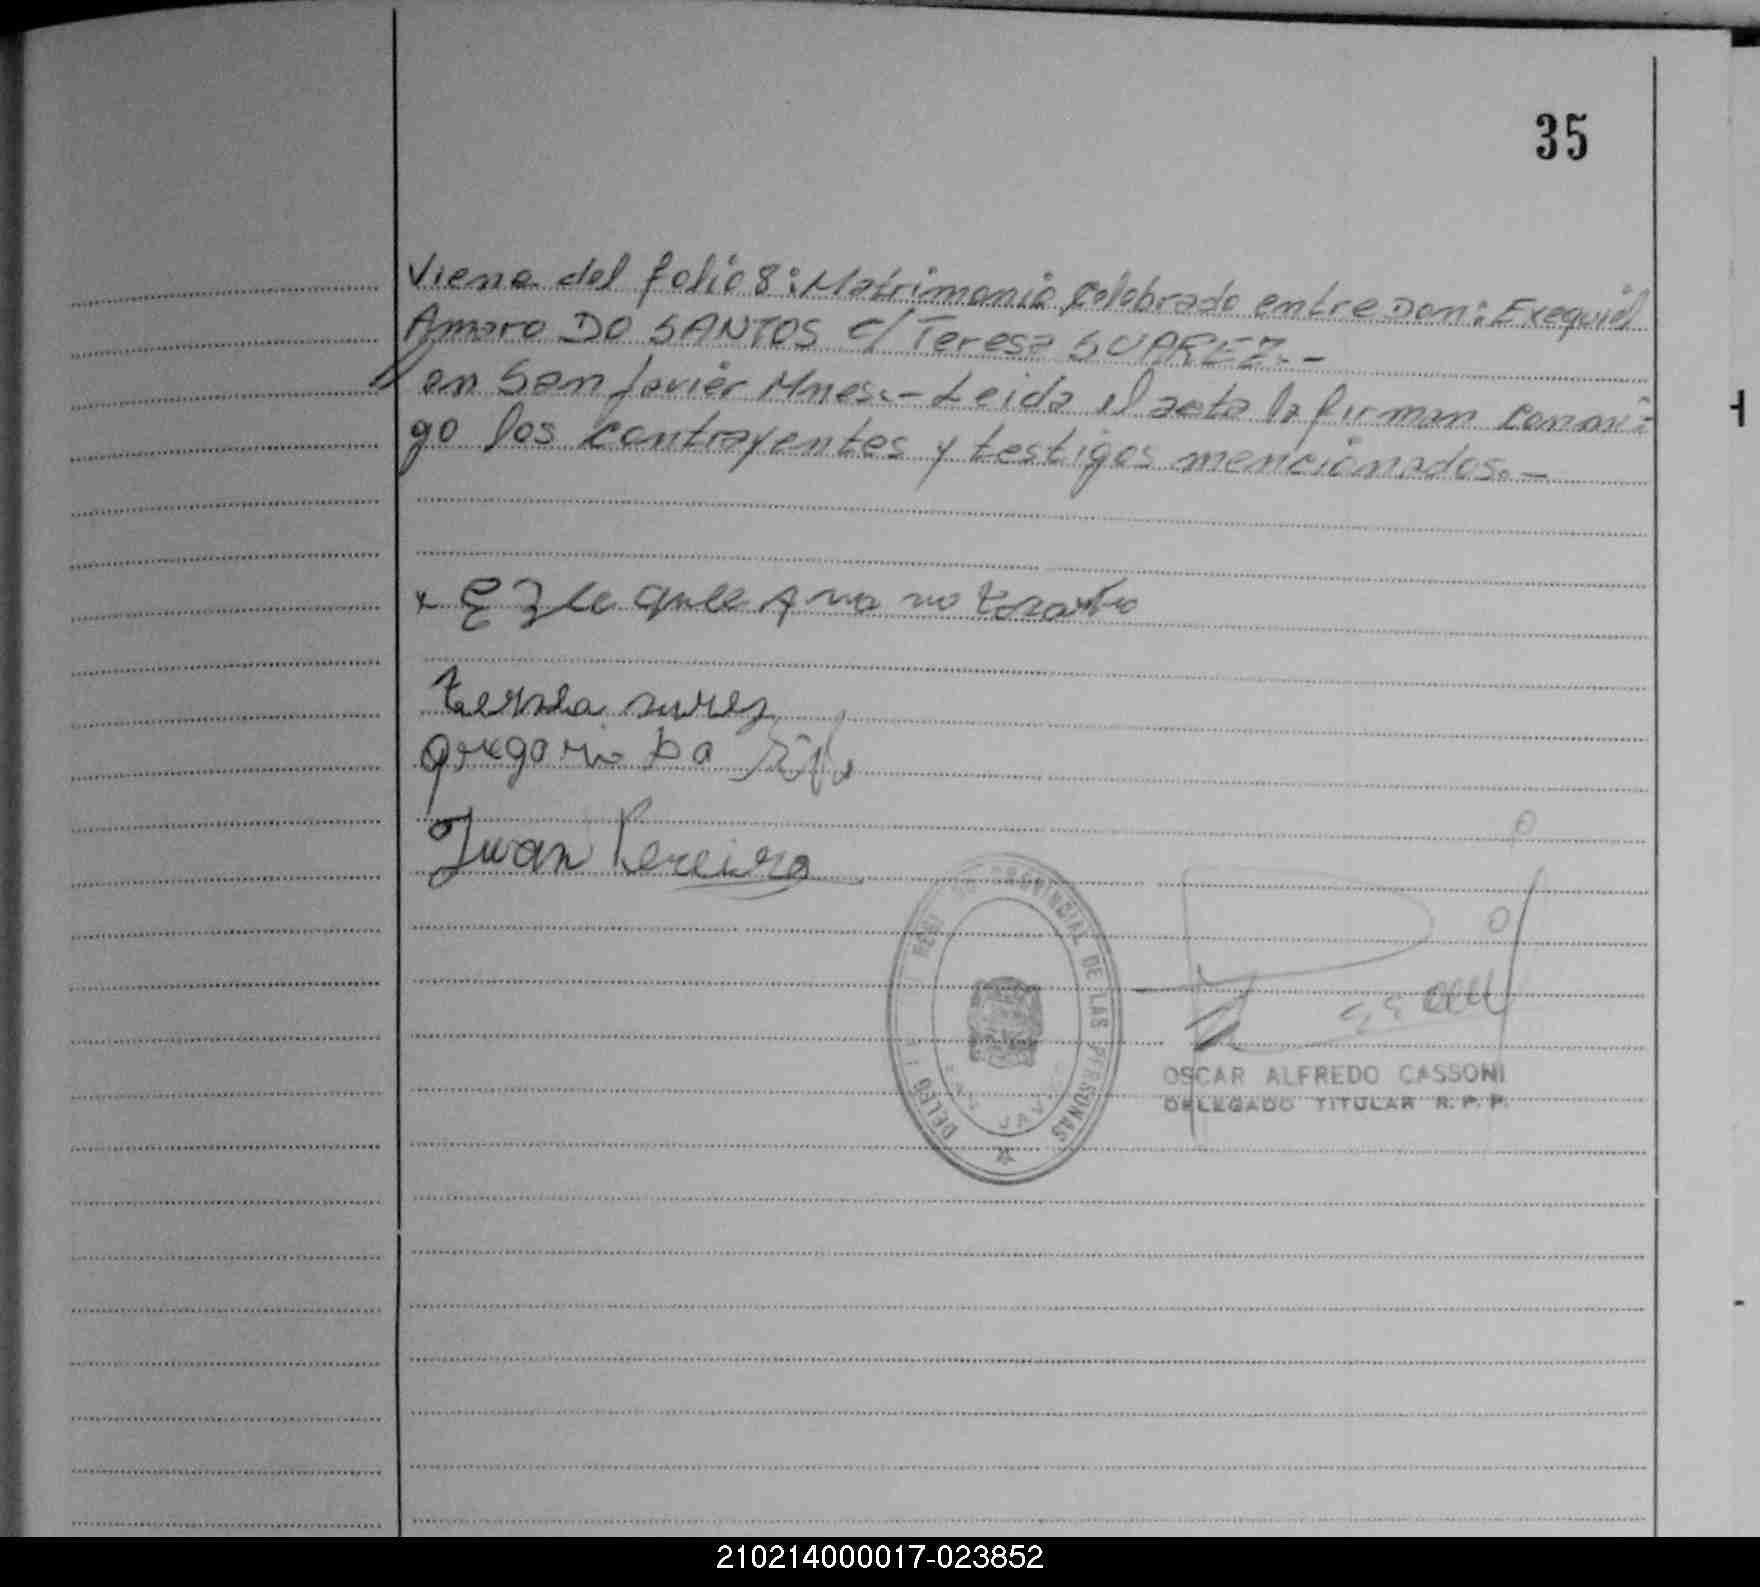 35
Viene del folio 8: Matrimonio celebrado entre Don: Exequiel
Amaro DO SANTOS c/ Teresa SUAREZ.-
en San Javier Mnes.- Leida el acta la firman conmi-
go los contrayentes y testigos mencionados.-
teresa surez
gregorio Da
Juan Pereira
PROVINCIAL DE LAS PERSONAS
DELEG
JAV
OSCAR ALFREDO CASSONI
DELEGADO TITULAR R.P.P.
210214000017-023852